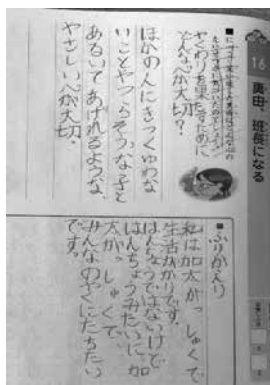 16
真由、班長になる
やくわりを果たすために
どんな心が大切?
ほかの人にきつくゆわな
いことやつらそうな子と
あるいてあげれるような、
やさしい心が大切。
■ふりかえり
私は加太がっしゅくで
生活がかりです。
はんちょうではないけど
はんちょうみたいに、加
太がっしゅくで、
みんなのやくにたちたい
です。